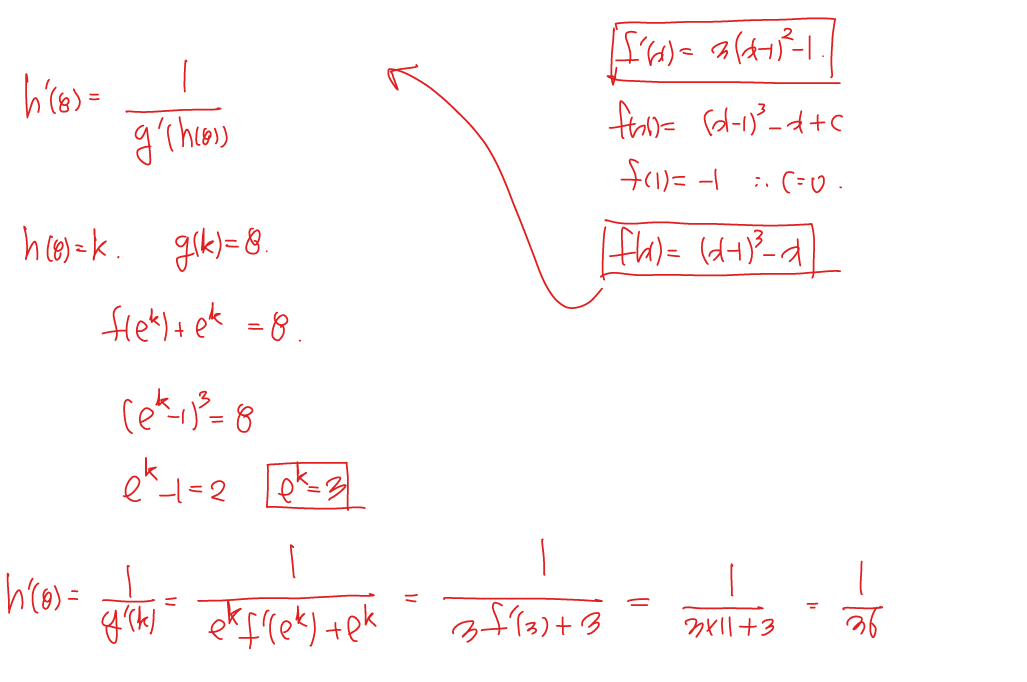 f'(x) = 3(x-1)² - 1.
f(x) = (x-1)³ - x + C
f(1) = -1 ∴ C = 0.
f(x) = (x-1)³ - x
h'(8) = 1/g'(h(8))
h(8) = k. g(k) = 8.
f(e^k) + e^k = 8.
(e^k - 1)³ = 8
e^k - 1 = 2 e^k = 3
h'(8) = 1/g'(k) = 1/(e^k f'(e^k) + e^k) = 1/(3f'(3) + 3) = 1/(3×11+3) = 1/36